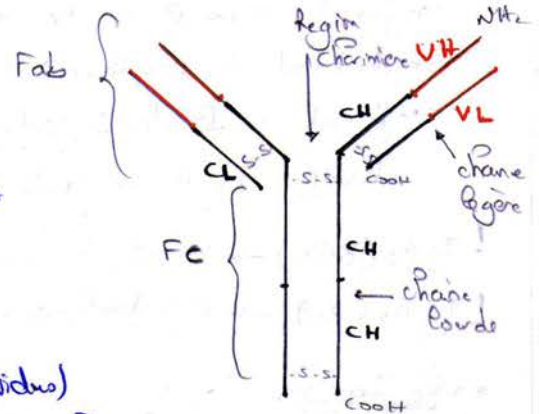 NH2
Région
charnière
VH
Fab
CH
VL
S-S
S-S
CL
-S-S-
COOH
chaine
légère
Fc
CH
chaine
lourde
CH
-S-S-
COOH